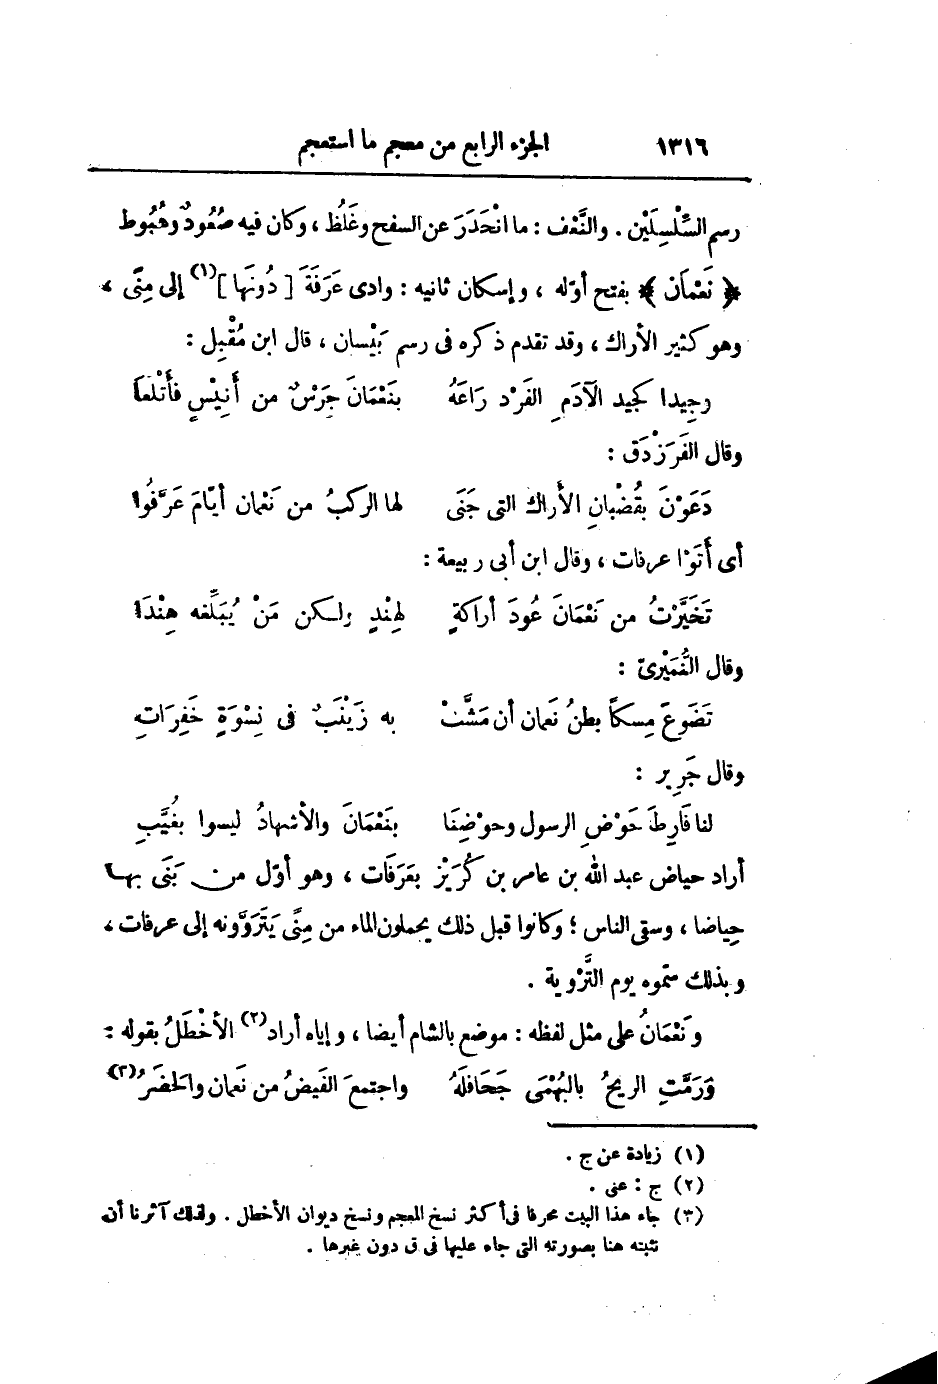 ١٣١٦ الجزء الرابع من معجم ما استعجم
رسم السَّلْسِلَيْن . والنَّعْف : ما انْحَدَرَ عن السفح وغَلُظ ، وكان فيه صُعُودٌ وهُبُوط
﴿ نَعْمَان ﴾ بفتح أوّله ، وإسكان ثانيه : وادى عَرَفَةَ [ دُونَهَا ] (١) إلى مِنًى ،
وهو كثير الأراك ، وقد تقدم ذكره فى رسم بَيْسان ، قال ابن مُقْبِل :
وجِيدا كجيد الآدَمِ الفَرْد رَاعَهُ بنَعْمَانَ جَرْسٌ من أَنيْسٍ فأَتْلَعاَ
وقال الفَرَزْدَق :
دَعَوْنَ بقُضْبانِ الأَراك التى جَنَى لها الركبُ من نَعْمان أيّامَ عَرَّفُوا
أى أَتَوْا عرفات ، وقال ابن أبى ربيعة :
تَخَيَّرْتُ من نَعْمَانَ عُودَ أراكةٍ لهِنْدٍ ولكن مَنْ يُبَلِّغه هِنْدَا
وقال النُّمَيْرىّ :
تَضَوعَ مِسكاً بطنُ نَعمان أن مَشَّتْ به زَيْنَبٌ فى نِسْوَةٍ خَفِرَاتِ
وقال جَرِير :
لنا فَارِطَ حَوْضِ الرسول وحوْضِنَا بنَعْمَانَ والأشهادُ ليسوا بغُيَّبِ
أراد حياض عبد الله بن عامر بن كُرَيْز بعَرَفَات ، وهو أوّل من بَنَى بها
حِياضا ، وسقى الناس ؛ وكانوا قبل ذلك يحملون الماء من مِنًى يَتَرَوَّونه إلى عرفات ،
وبذلك سمّوه يوم التَّرْوية .
ونَعْمَانُ على مثل لفظه : موضع بالشام أيضا ، وإياه أراد (٢) الأخْطَلُ بقوله :
وَرَمَّتِ الريحُ بالبُهْمَى جَحَافلَهُ واجتمعَ الفَيضُ من نَعمان والحَضَرُ (٣)
(١) زيادة عن ج .
(٢) ج : عنى .
(٣) جاء هذا البيت محرفا فى أكثر نسخ المعجم ونسخ ديوان الأخطل . ولذلك آثرنا أن
نثبته هنا بصورته التى جاء عليها فى ق دون غيرها .